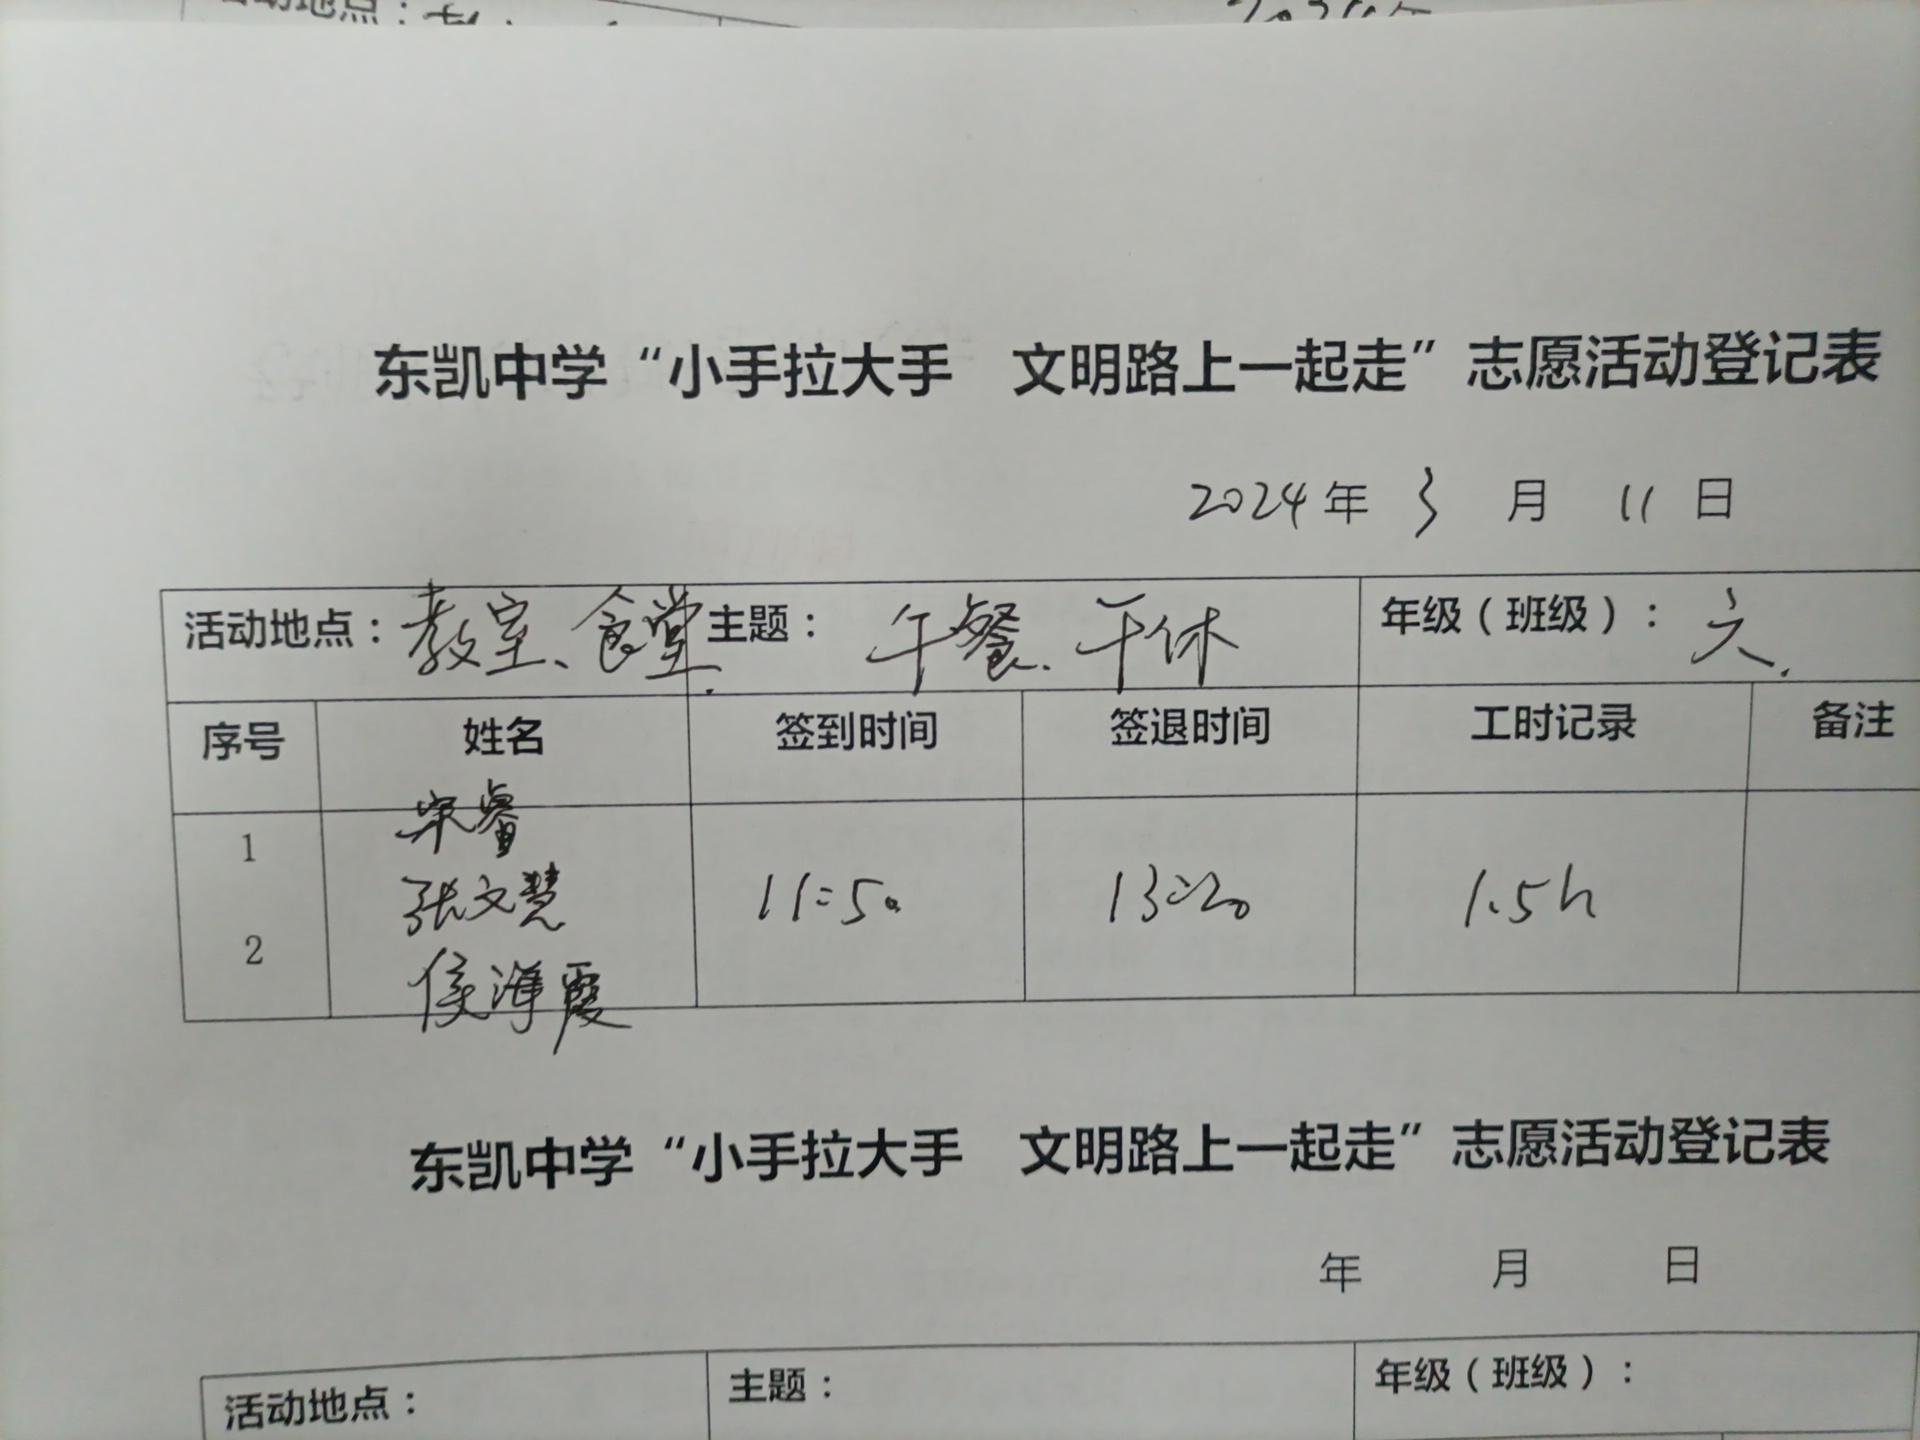 活动地点：
东凯中学“小手拉大手 文明路上一起走”志愿活动登记表
2024年 3 月 11 日
活动地点：教室、食堂. 主题： 午餐、午休 年级（班级）：六.
序号 姓名 签到时间 签退时间 工时记录 备注
1 宋睿
张文慧 11:50 13:20 1.5h
2
侯海霞
东凯中学“小手拉大手 文明路上一起走”志愿活动登记表
年 月 日
活动地点： 主题： 年级（班级）：